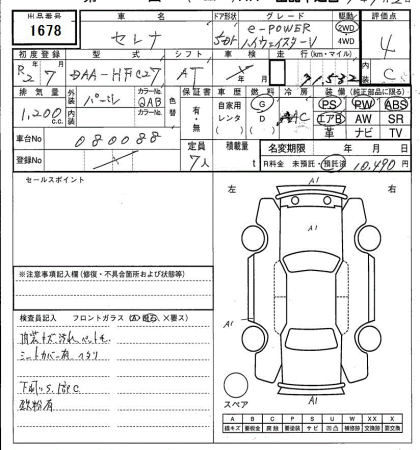 出品番号 車名 ドア形状 グレード 駆動 評価点
1678 セレナ 5Dr e-POWER ハイウェイスターV 2WD 4WD 4
初度登録 型式 シフト 車検 走行(km・マイル) 内
R2 7 DAA-HFC27 AT 年 月 31,532 C
排気量 外装 カラーNo. 色替 保証書 車歴 燃料 冷房 装備(純正部品に限る)
1,200 c.c. パール QAB 有・無 自家用 レンタ G D AC PS PW ABS
内装 カラーNo. エアB AW SR
革 ナビ TV
車台No 080088 定員 積載量 名変期限 年 月 日
登録No 7人 t R料金 未預託・預託済 10,490円
セールスポイント
左 右
A1
A1
A1
A1
スペア
※注意事項記入欄(修復・不具合箇所および状態等)
検査員記入 フロントガラス(A、飛石、×要ス)
内装キズ汚れ
シートカバー有
下廻りS.腐C
鉄粉有
A B C P S U W XX X
線キズ 要板金 腐蝕 要塗装 サビ 凹凸 補修跡 交換済 要交換